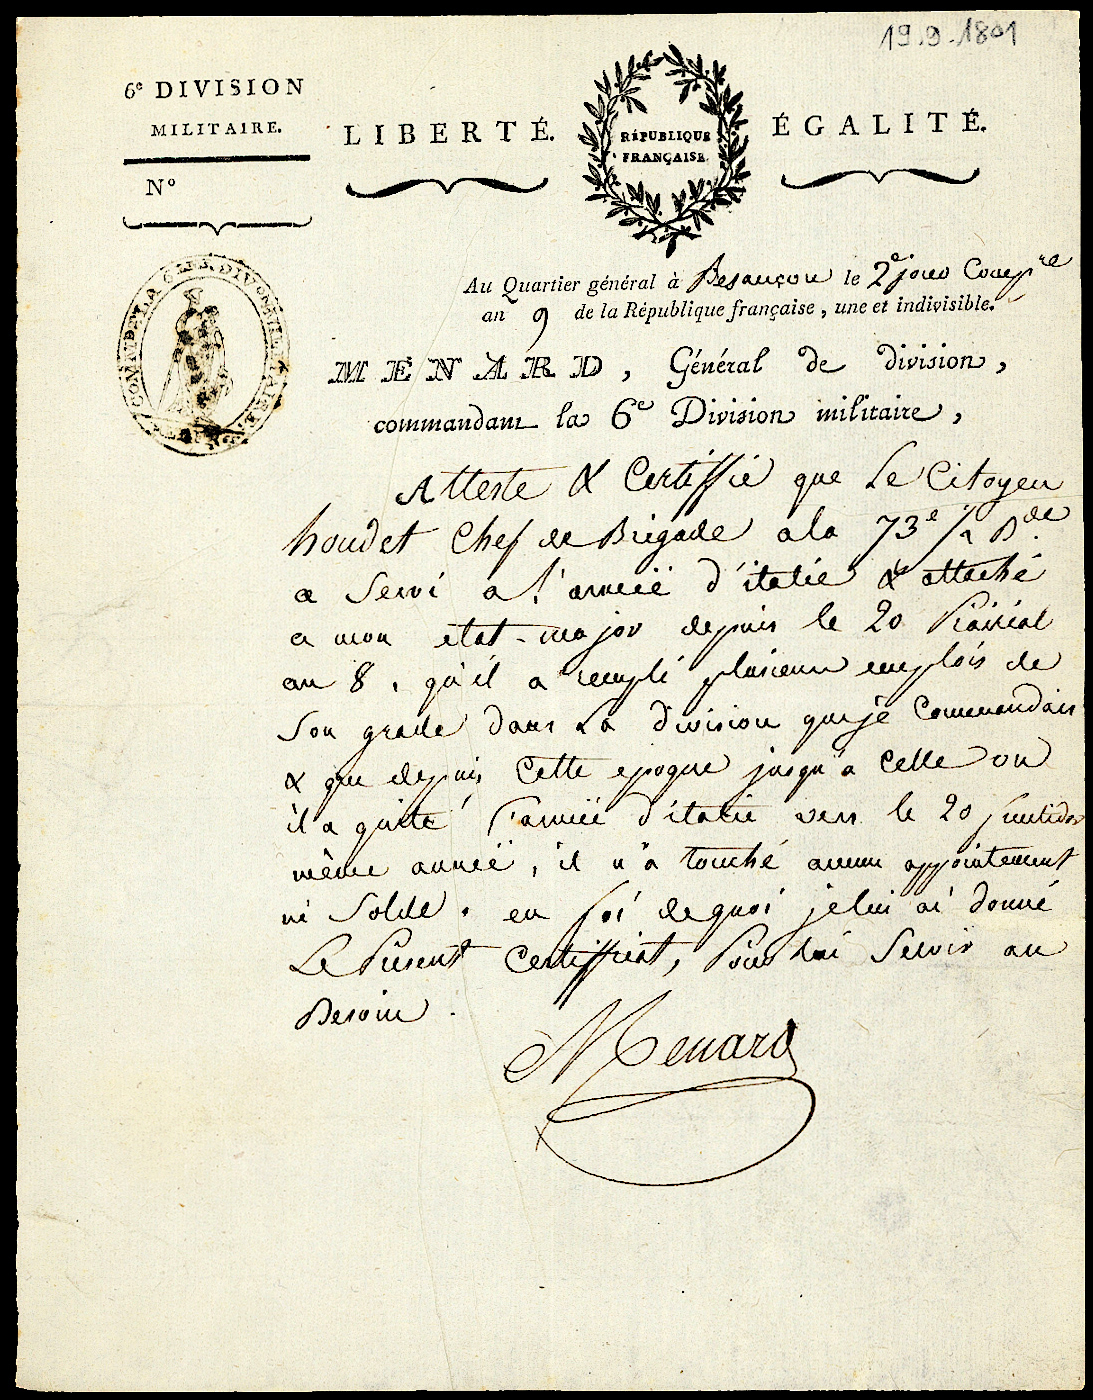 19.9.1801
6e DIVISION
MILITAIRE.
N°
LIBERTÉ.
RÉPUBLIQUE
FRANÇAISE.
ÉGALITÉ.
COMM. DE LA 6e DIV.on MILITAIRE
Au Quartier général à Besançon le 2e jour Comp.re
an 9 de la République française, une et indivisible.
MENARD, Général de division,
commandant la 6e Division militaire,
Atteste & Certiffie que Le Citoyen
houdet Chef de Brigade a la 73e 1/2 B.de
a Servi a l'armeé d'italie & attaché
a mon etat-major depuis le 20 Prairial
an 8, qu'il a rempli plusieurs emplois de
Son grade dans La division que je Commandais
& que depuis Cette epoque jusqu'a Celle ou
il a quitté l'armeé d'italie vers le 20 fructidor
même anneé, il n'a touché aucun appointement
ni Solde. en foi de quoi je lui ai donné
Le Present Certifficat, Pour lui Servir au
Besoin.
Menard